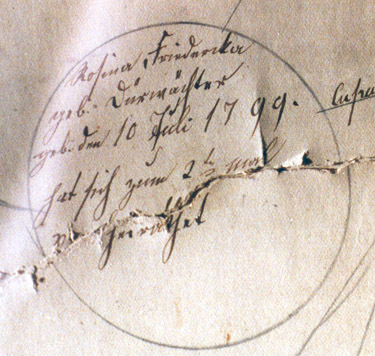 Rosina Friederika
geb. Dürwächter
geb. den 10 Juli 1799.
hat sich zum 2t mal
verheirathet